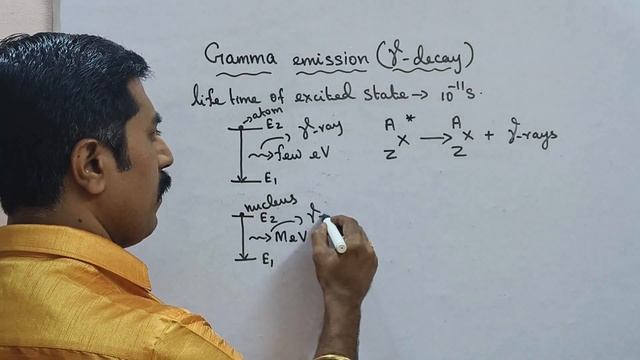 Gamma emission (γ-decay)
life time of excited state → 10⁻¹¹ s.
atom
E₂ γ-ray
few eV
E₁
A X* → A X + γ-rays
Z Z
nucleus
E₂ γ-
MeV
E₁